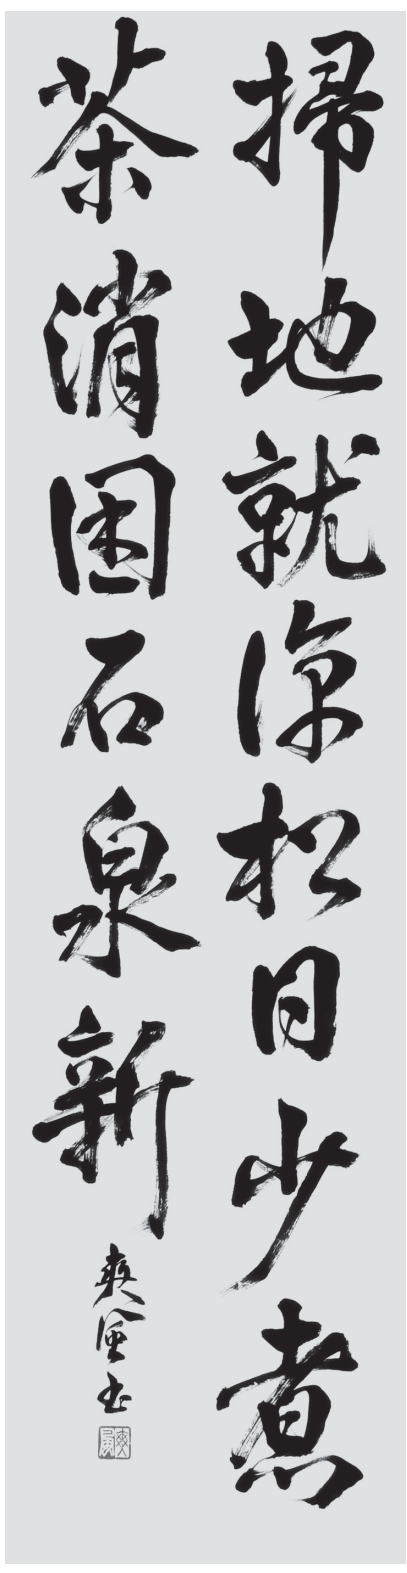 掃地就涼松日少煮
茶消困石泉新
爽風書